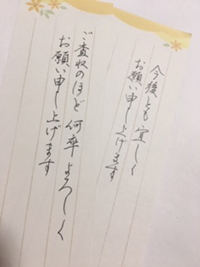 今後とも宜しく
お願い申し上げます
ご査収のほど何卒よろしく
お願い申し上げます